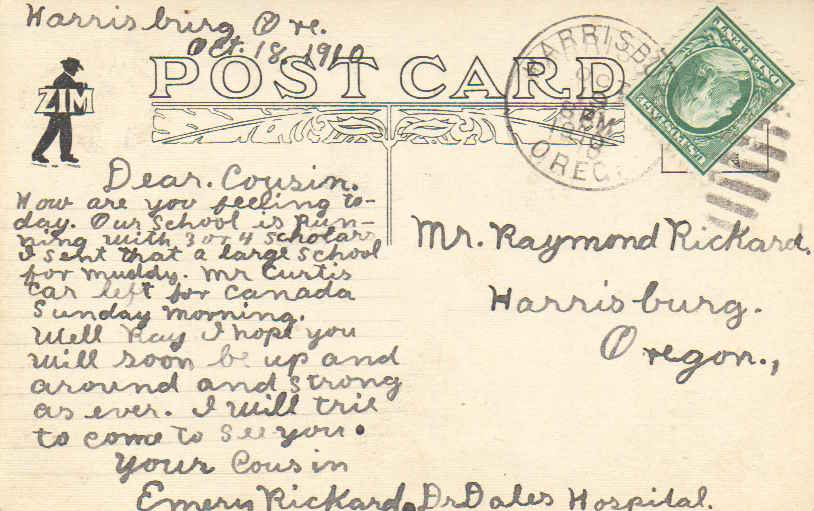 Harrisburg Ore.
Oct. 18, 1910
POST CARD
ZIM
HARRISBURG
OCT
18
8 PM
1910
OREG.
Dear. Cousin.
How are you feeling to-
day. Our School is Run-
ning with 3 or 4 scholars
I sent that a large School
for muddy. Mr Curtis
Car left for Canada
Sunday morning.
Well Ray I hope you
will soon be up and
around and strong
as ever. I will trie
to come to see you.
Your Cousin
Emery Rickard. Dr Dales Hospital.
Mr. Raymond Rickard.
Harrisburg.
Oregon.,